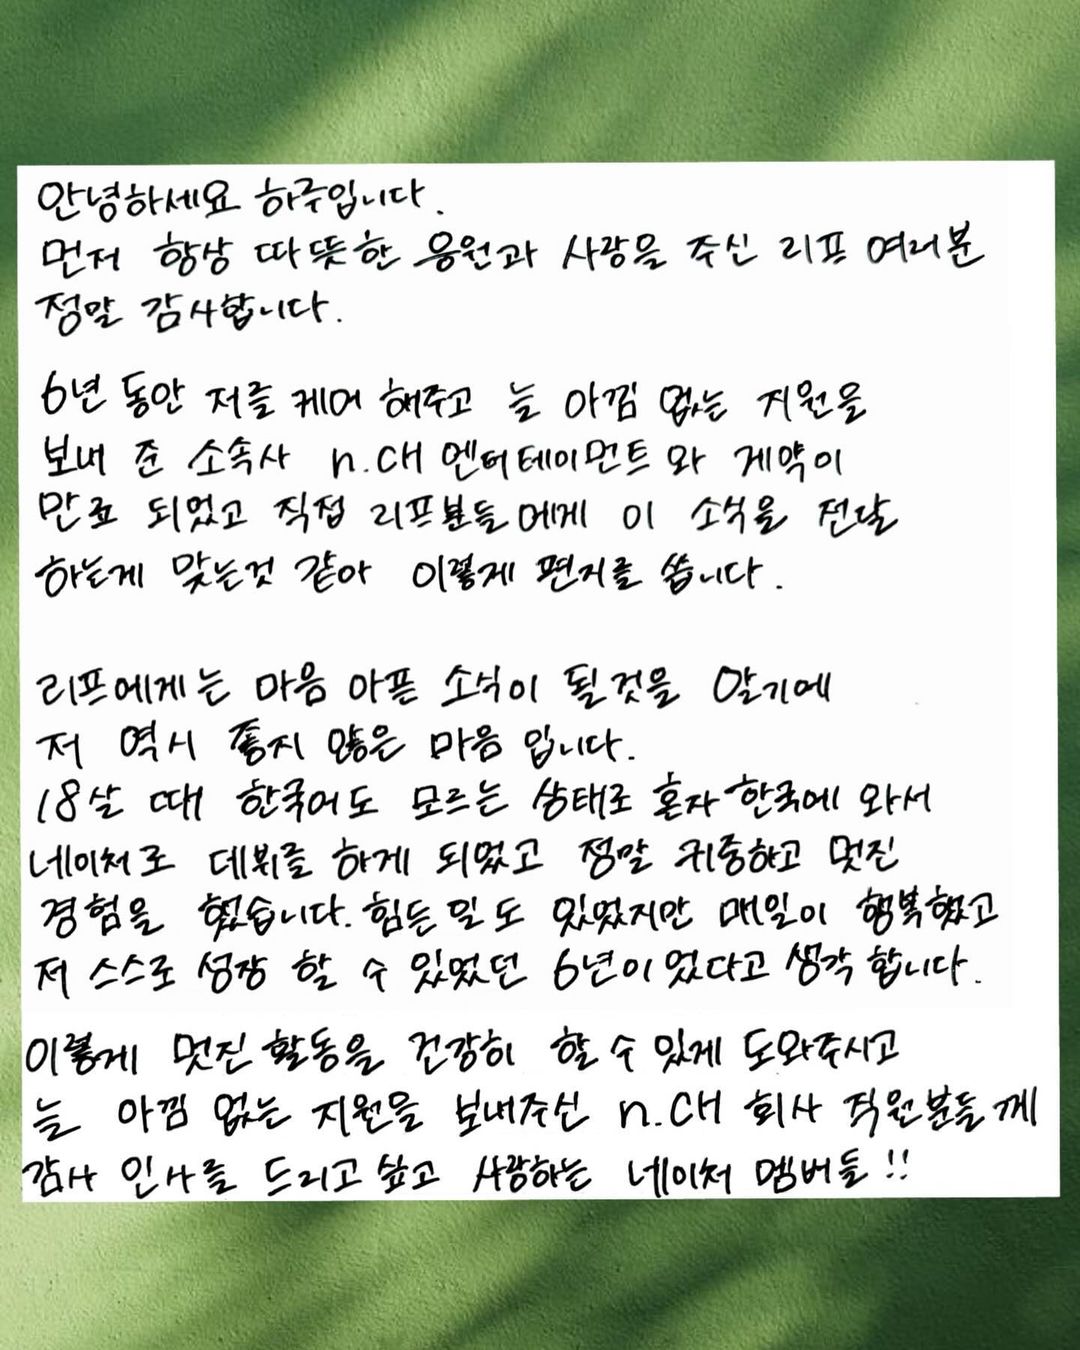 안녕하세요 하루입니다.
먼저 항상 따뜻한 응원과 사랑을 주신 리프 여러분
정말 감사합니다.
6년 동안 저를 케어 해주고 늘 아낌 없는 지원을
보내 준 소속사 n.CH 엔터테이먼트와 계약이
만료 되었고 직접 리프분들에게 이 소식을 전달
하는게 맞는것 같아 이렇게 편지를 씁니다.
리프에게는 마음 아픈 소식이 될것을 알기에
저 역시 좋지 않은 마음 입니다.
18살 때 한국어도 모르는 상태로 혼자 한국에 와서
네이처로 데뷔를 하게 되었고 정말 귀중하고 멋진
경험을 했습니다. 힘든 일도 있었지만 매일이 행복했고
저 스스로 성장 할 수 있었던 6년이었다고 생각 합니다.
이렇게 멋진 활동을 건강히 할 수 있게 도와주시고
늘 아낌 없는 지원을 보내주신 n.CH 회사 직원분들께
감사 인사를 드리고 싶고 사랑하는 네이처 멤버들!!